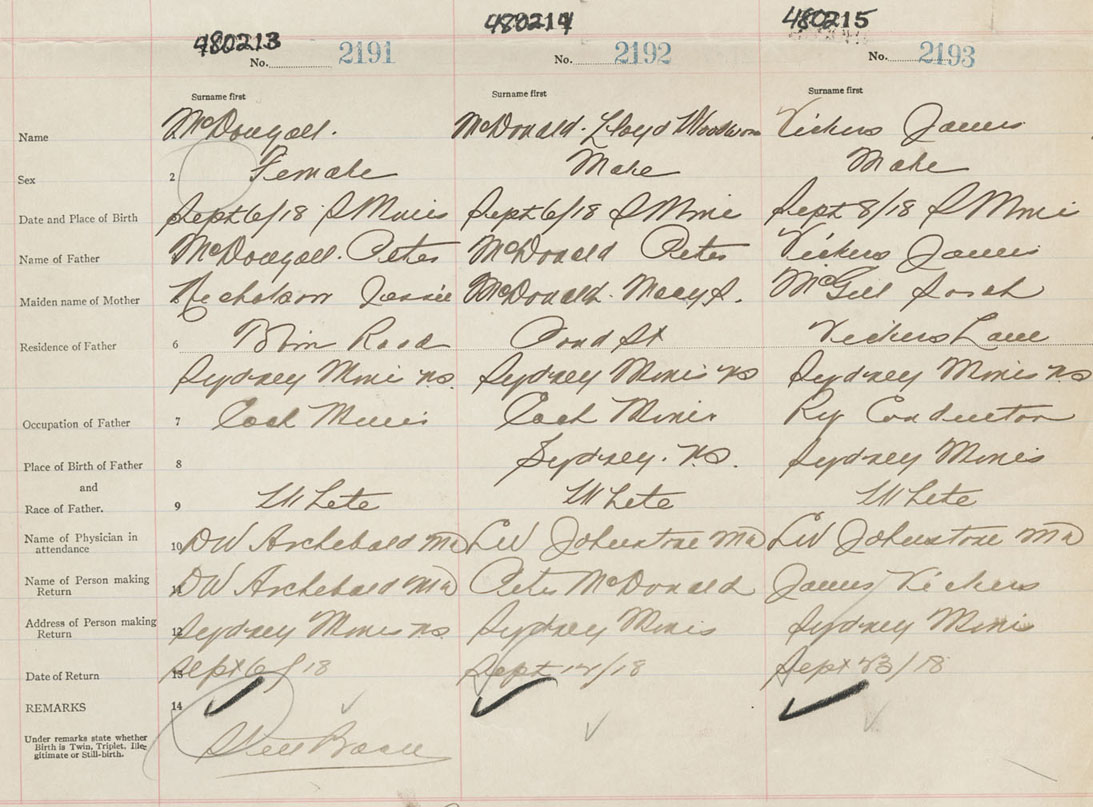 480213 480214 480215
No. 2191 No. 2192 No. 2193
Surname first Surname first Surname first
Name McDougall. McDonald. Lloyd Vickers James
Sex 2 Female Male Male
Date and Place of Birth Sept 6/18 S Mines Sept 6/18 S Mines Sept 8/18 S Mines
Name of Father McDougall. Peter McDonald Peter Vickers James
Maiden name of Mother Nicholson Jessie McDonald. Mary S. McGill Sarah
Residence of Father 6 Road Pond St Vickers Lane
Sydney Mines NS. Sydney Mines NS Sydney Mines NS
Occupation of Father 7 Coal Miner Coal Miner Ry Conductor
Place of Birth of Father 8 Sydney. NS. Sydney Mines
and
Race of Father. 9 White White White
Name of Physician in
attendance 10 DW Archibald MD LW Johnstone MD LW Johnstone MD
Name of Person making
Return 11 DW Archibald MD Peter McDonald James Vickers
Address of Person making
Return 12 Sydney Mines NS. Sydney Mines Sydney Mines
Date of Return 13 Sept 6/18 Sept 14/18 Sept 23/18
REMARKS 14
Under remarks state whether
Birth is Twin, Triplet, Ille-
gitimate or Still-birth.
Still Born